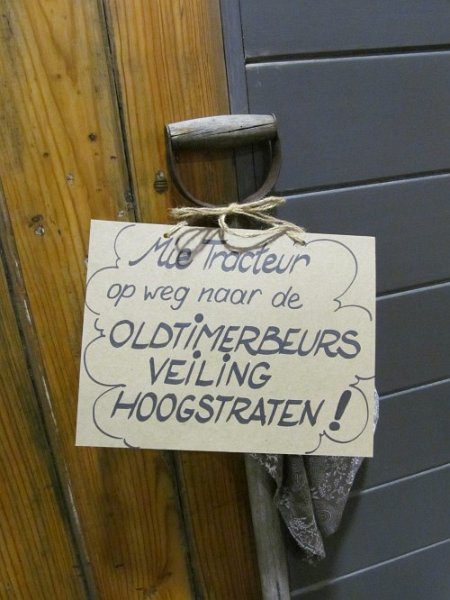 Mie Tracteur
op weg naar de
OLDTiMERBEURS
VEiLiNG
HOOGSTRATEN!